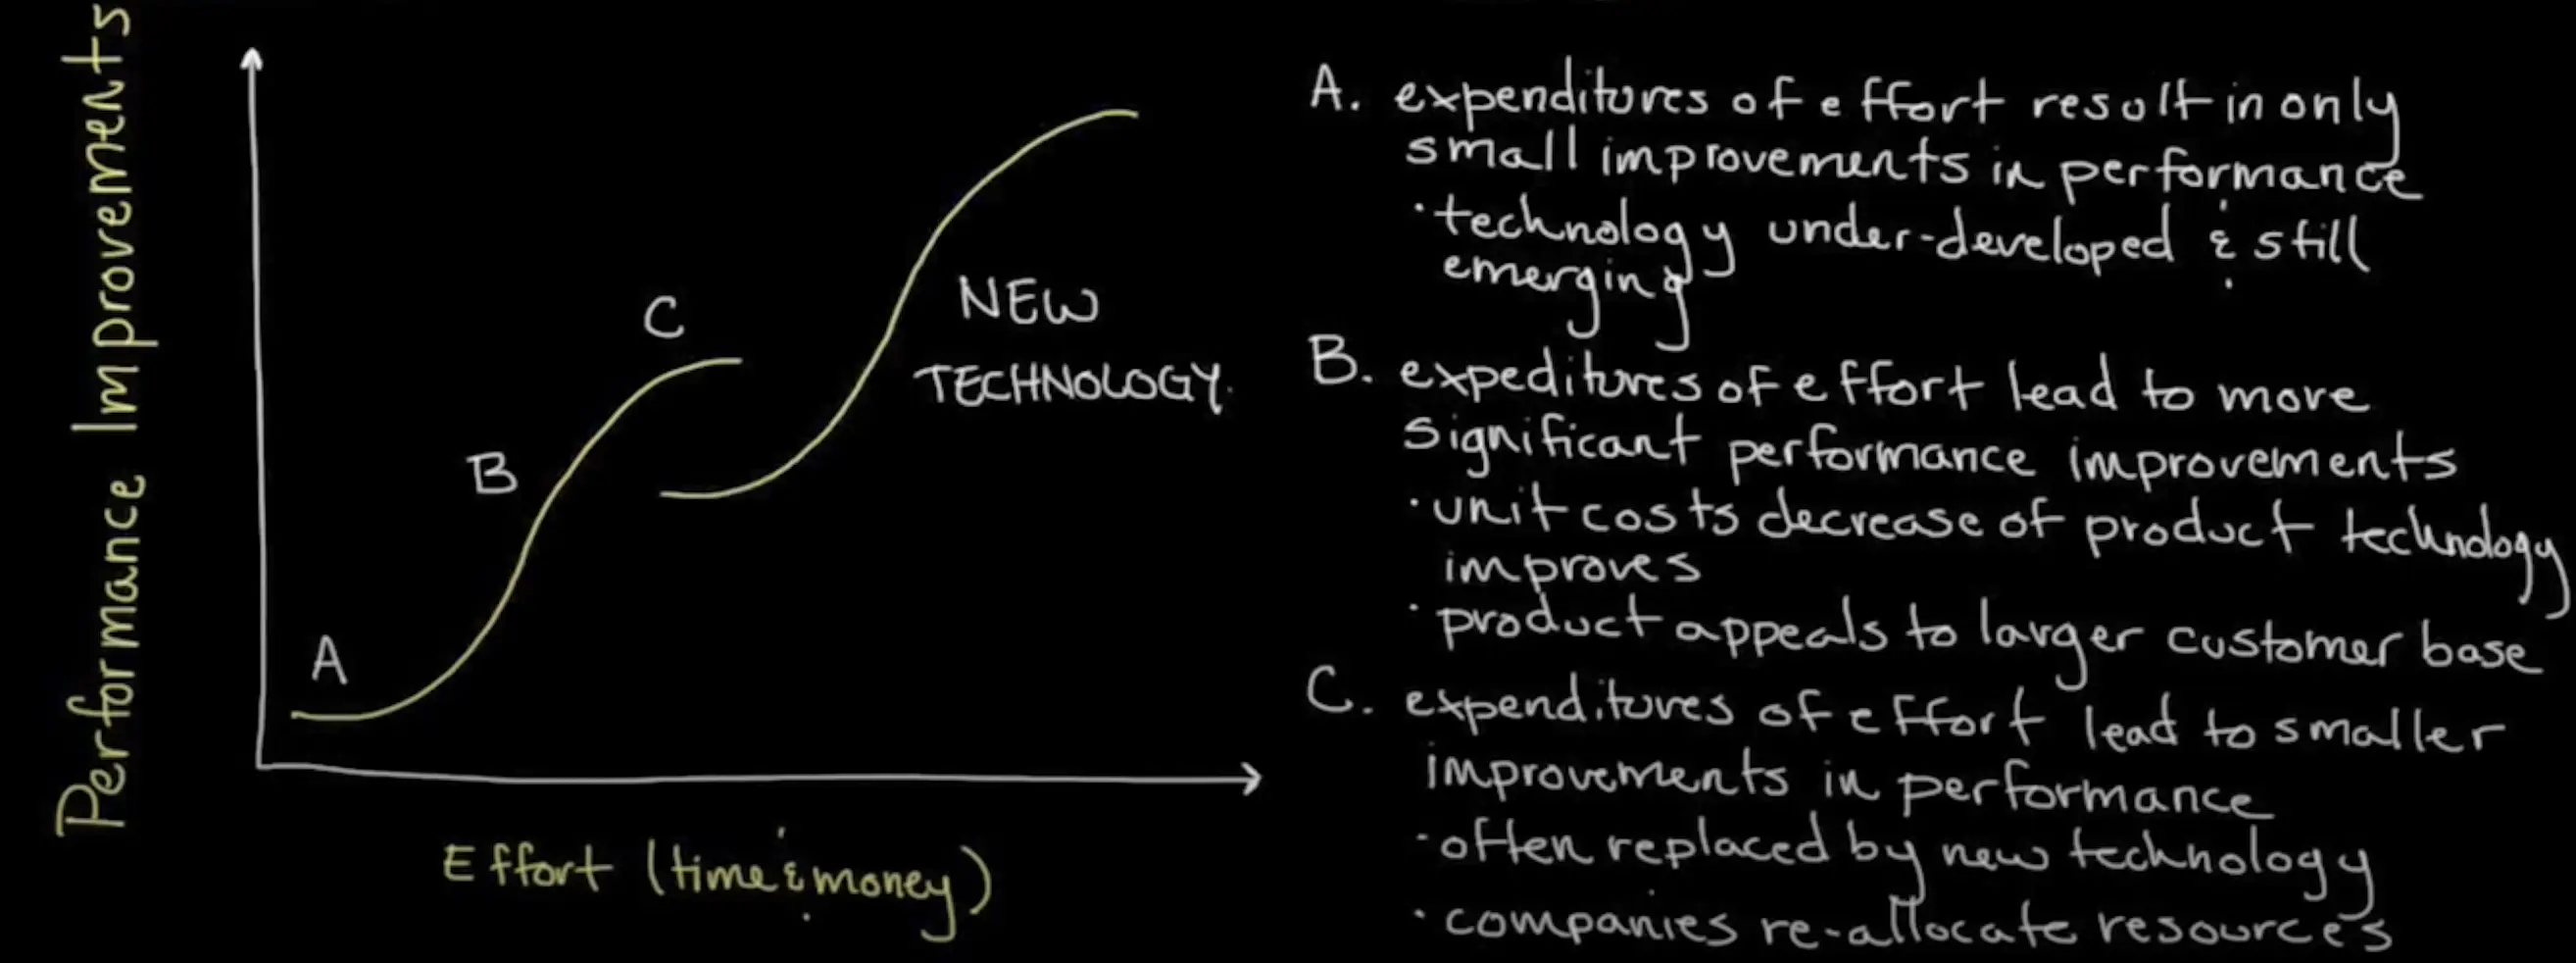 Performance Improvements
C
B
A
NEW
TECHNOLOGY.
Effort (time & money)
A. expenditures of effort result in only
small improvements in performance
· technology under-developed & still
emerging
B. expeditures of effort lead to more
significant performance improvements
· unit costs decrease of product technology
improves
· product appeals to larger customer base
C. expenditures of effort lead to smaller
improvements in performance
· often replaced by new technology
· companies re-allocate resources